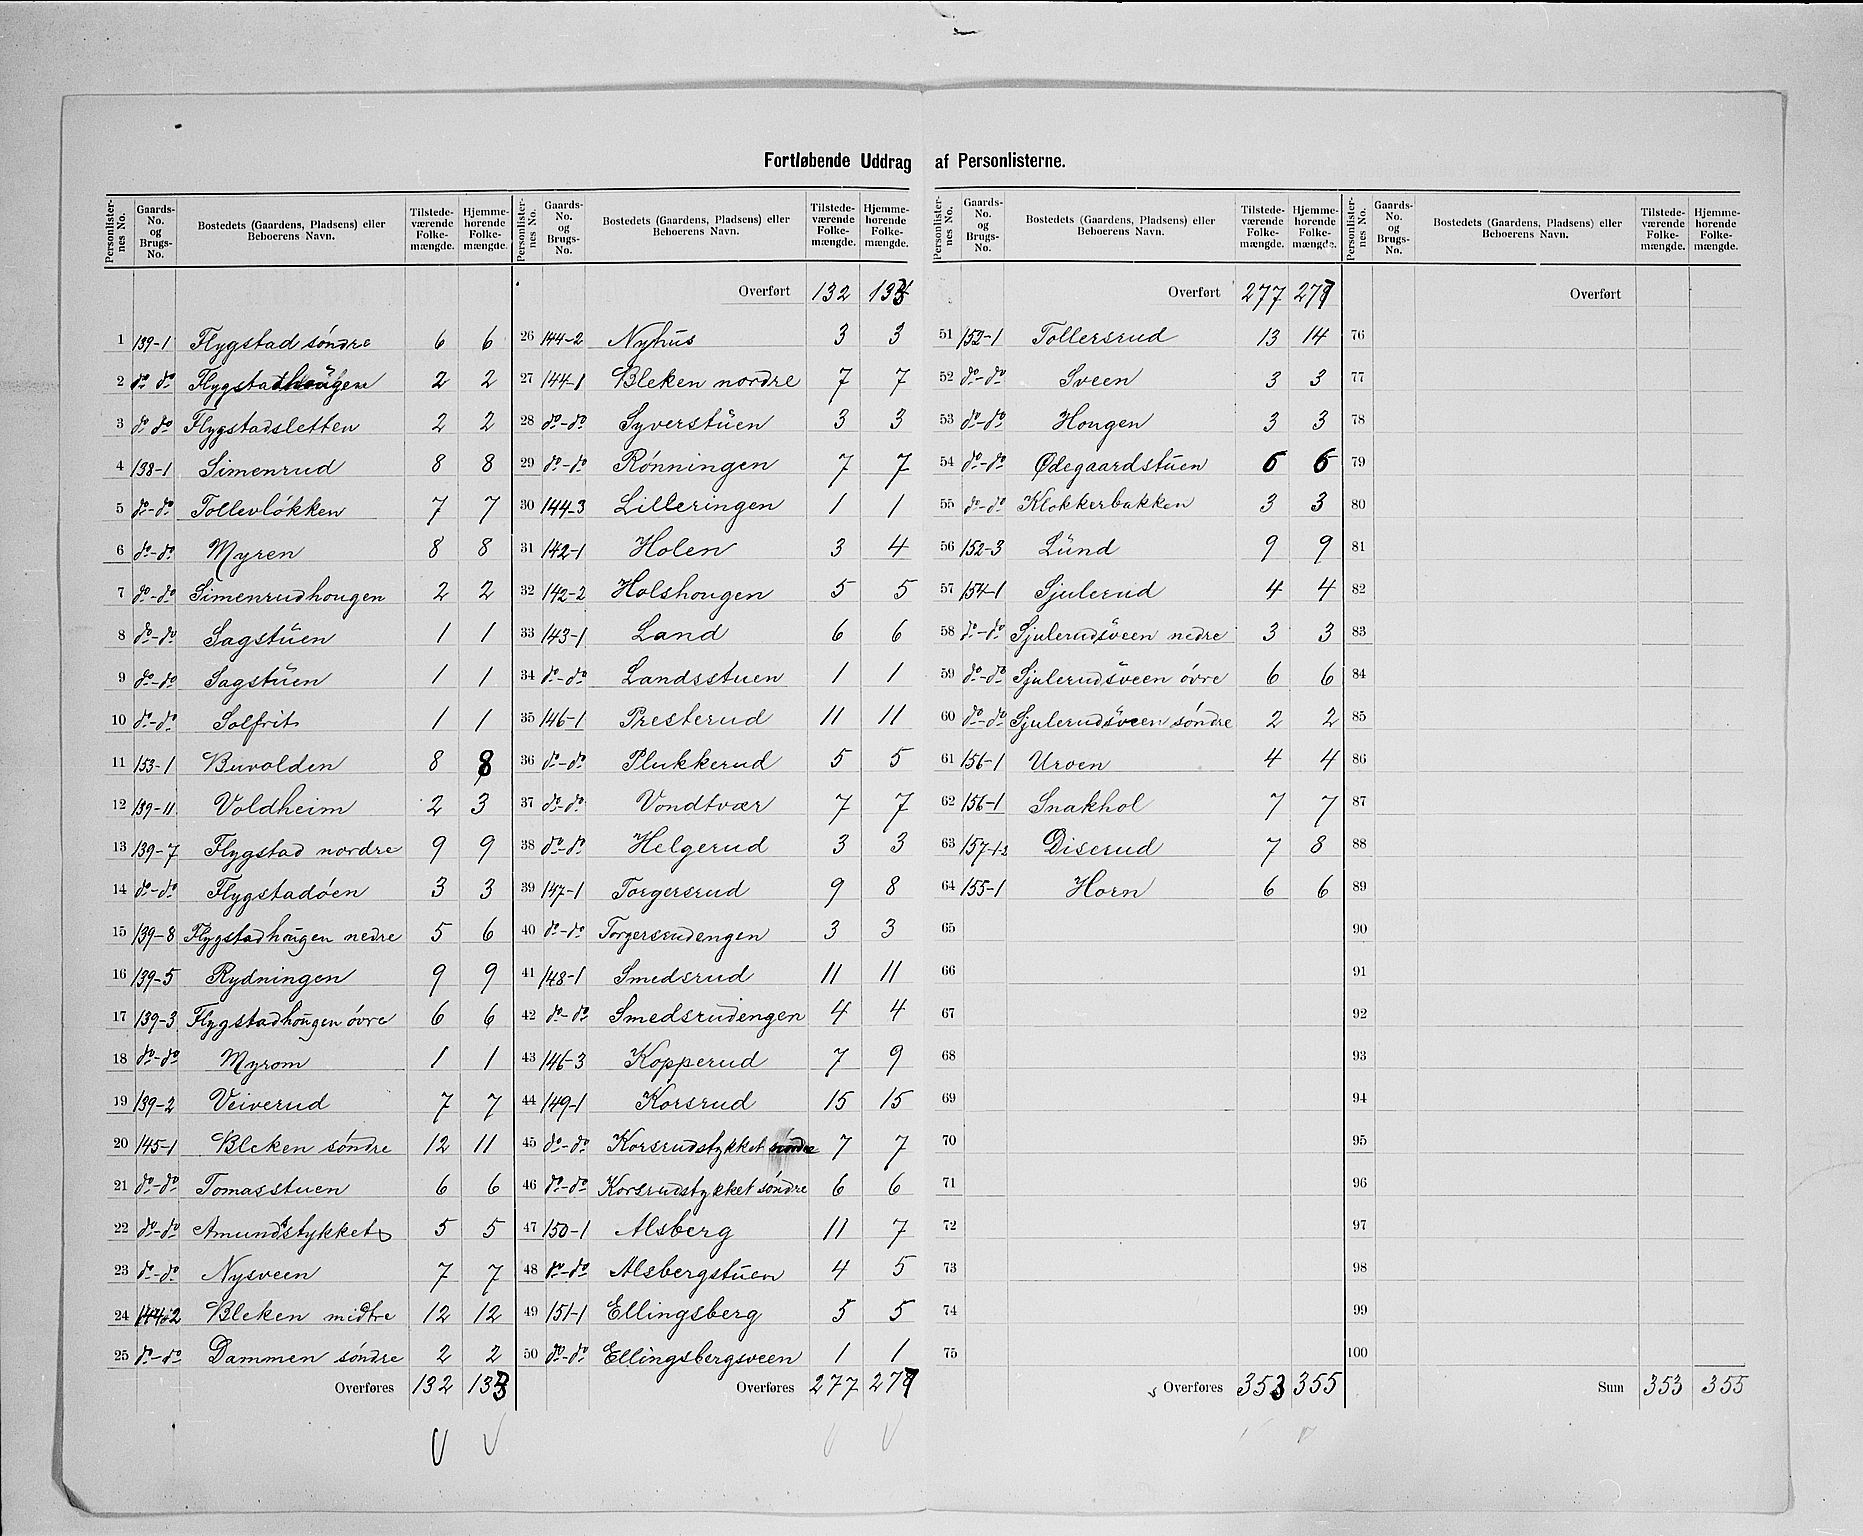 Fortløbende Uddrag af Personlisterne.
Personlister-nes No. Gaards-No. og Brugs-No. Bostedets (Gaardens, Pladsens) eller Beboerens Navn. Tilstede-værende Folke-mængde. Hjemme-hørende Folke-mængde.
1 139-1 Flygstad söndre 6 6
2 do do Flygstadhougen 2 2
3 do do Flygstadsletten 2 2
4 138-1 Simenrud 8 8
5 do-do Tollevlökken 7 7
6 do-do Myren 8 8
7 do-do Simenrudhougen 2 2
8 do-do Sagstuen 1 1
9 do-do Sagstuen 1 1
10 do-do Solfrit 1 1
11 153-1 Buvolden 8 8
12 139-11 Voldheim 2 3
13 139-7 Flygstad nordre 9 9
14 do-do Flygstadöen 3 3
15 139-8 Flygstadhougen nedre 5 6
16 139-5 Rydningen 9 9
17 139-3 Flygstadhougen övre 6 6
18 do-do Myrom 1 1
19 139-2 Veiverud 7 7
20 145-1 Bleken söndre 12 11
21 do-do Tomasstuen 6 6
22 do-do Amundstykket 5 5
23 do-do Nysveen 7 7
24 144-2 Bleken midtre 12 12
25 do-do Dammen söndre 2 2
Overføres 132 133
Personlister-nes No. Gaards-No. og Brugs-No. Bostedets (Gaardens, Pladsens) eller Beboerens Navn. Tilstede-værende Folke-mængde. Hjemme-hørende Folke-mængde.
Overført 132 133
26 144-2 Nyhus 3 3
27 144-1 Bleken nordre 7 7
28 do-do Syverstuen 3 3
29 do-do Rönningen 7 7
30 144-3 Lilleringen 1 1
31 142-1 Holen 3 4
32 142-2 Holshougen 5 5
33 143-1 Land 6 6
34 do-do Landsstuen 1 1
35 146-1 Presterud 11 11
36 do-do Plukkerud 5 5
37 do-do Vondtvær 7 7
38 do-do Helgerud 3 3
39 147-1 Torgersrud 9 8
40 do-do Torgersrudengen 3 3
41 148-1 Smedsrud 11 11
42 do-do Smedsrudengen 4 4
43 146-3 Kopperud 7 9
44 149-1 Korsrud 15 15
45 do-do Korsrudstykket söndre 7 7
46 do-do Korsrudstykket söndre 6 6
47 150-1 Alsberg 11 7
48 do-do Alsbergstuen 4 5
49 151-1 Ellingsberg 5 5
50 do-do Ellingsbergsveen 1 1
Overføres 277 277
Personlister-nes No. Gaards-No. og Brugs-No. Bostedets (Gaardens, Pladsens) eller Beboerens Navn. Tilstede-værende Folke-mængde. Hjemme-hørende Folke-mængde.
Overført 277 277
51 152-1 Tollersrud 13 14
52 do-do Sveen 3 3
53 do-do Hougen 3 3
54 do-do Ødegaardstuen 6 6
55 do-do Klokkerbakken 3 3
56 152-3 Lund 9 9
57 154-1 Sjulerud 4 4
58 do-do Sjulerudsveen nedre 3 3
59 do-do Sjulerudsveen övre 6 6
60 do-do Sjulerudsveen söndre 2 2
61 156-1 Uroen 4 4
62 156-1 Snakhol 7 7
63 157-1-2 Diserud 7 8
64 155-1 Horn 6 6
65
66
67
68
69
70
71
72
73
74
75
Overføres 353 355
Personlister-nes No. Gaards-No. og Brugs-No. Bostedets (Gaardens, Pladsens) eller Beboerens Navn. Tilstede-værende Folke-mængde. Hjemme-hørende Folke-mængde.
Overført
76
77
78
79
80
81
82
83
84
85
86
87
88
89
90
91
92
93
94
95
96
97
98
99
100
Sum 353 355